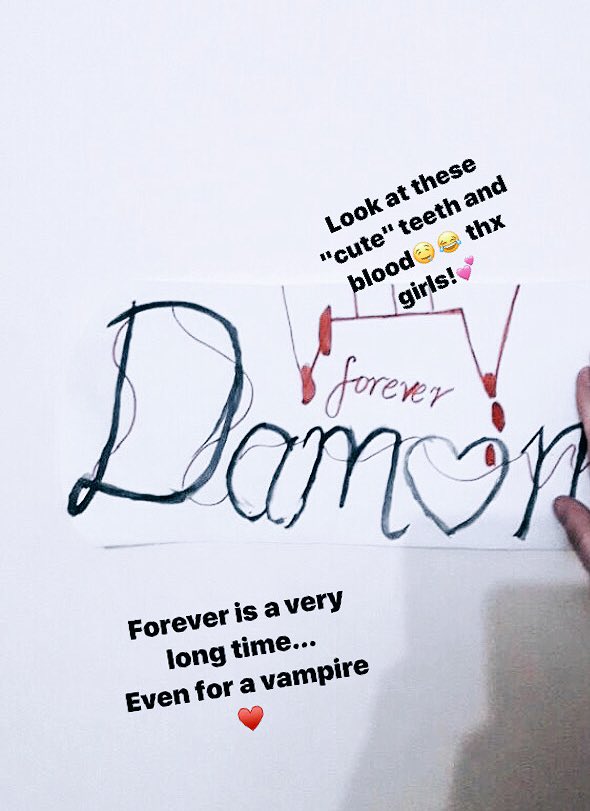 Look at these
"cute" teeth and
blood🤤😂 thx
girls!💕
forever
Damon
Forever is a very
long time...
Even for a vampire
♥️